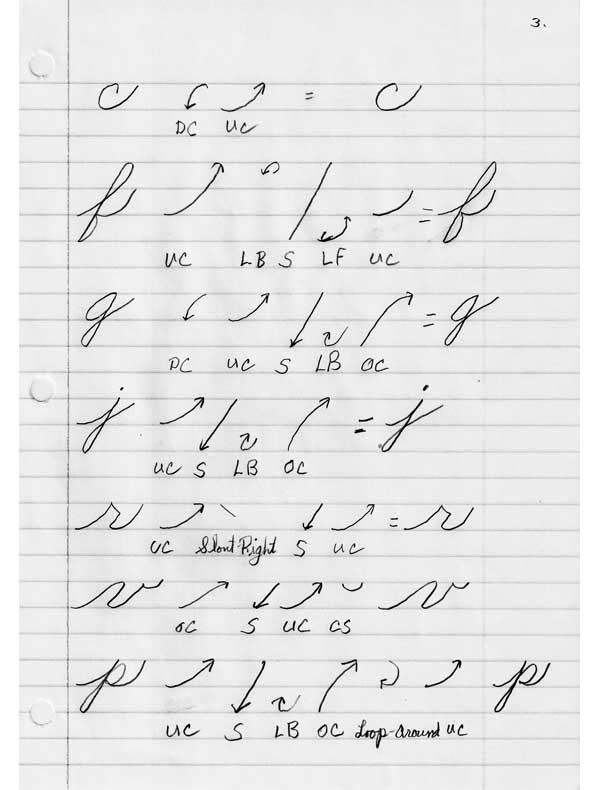 3.
c = c
DC UC
f = f
UC LB S LF UC
g = g
DC UC S LB OC
j = j
UC S LB OC
r = r
UC Slant Right S UC
v v
OC S UC CS
p p
UC S LB OC Loop-around UC